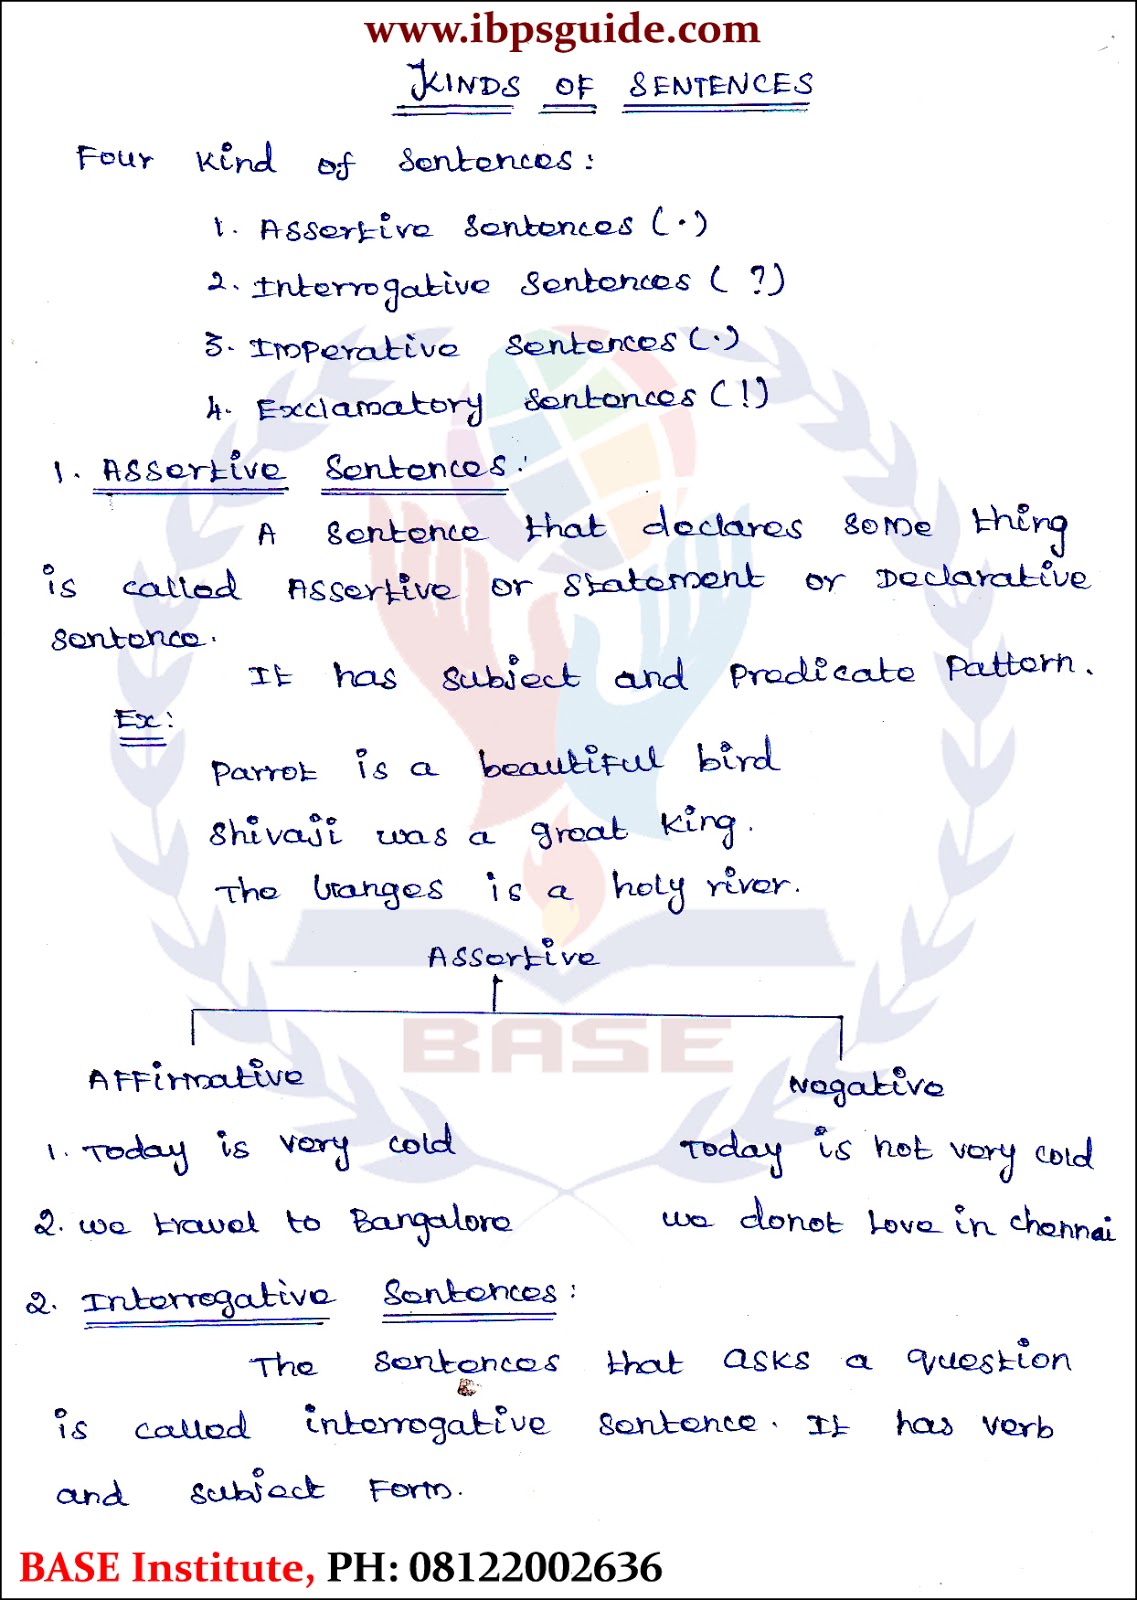 www.ibpsguide.com
KINDS OF SENTENCES
Four Kind of Sentences:
1. Assertive Sentences (.)
2. Interrogative Sentences ( ?)
3. Imperative Sentences (.)
4. Exclamatory Sentences (!)
1. Assertive Sentences:
A Sentence that declares some thing
is called Assertive or Statement or Declarative
Sentence.
It has Subject and Predicate Pattern.
Ex:
Parrot is a beautiful bird
Shivaji was a great King.
The Ganges is a holy river.
Assertive
BASE
Affirmative Negative
1. Today is very cold Today is not very cold
2. we travel to Bangalore we donot Love in Chennai
2. Interrogative Sentences:
The Sentences that asks a question
is called interrogative Sentence. It has verb
and Subject Form.
BASE Institute, PH: 08122002636